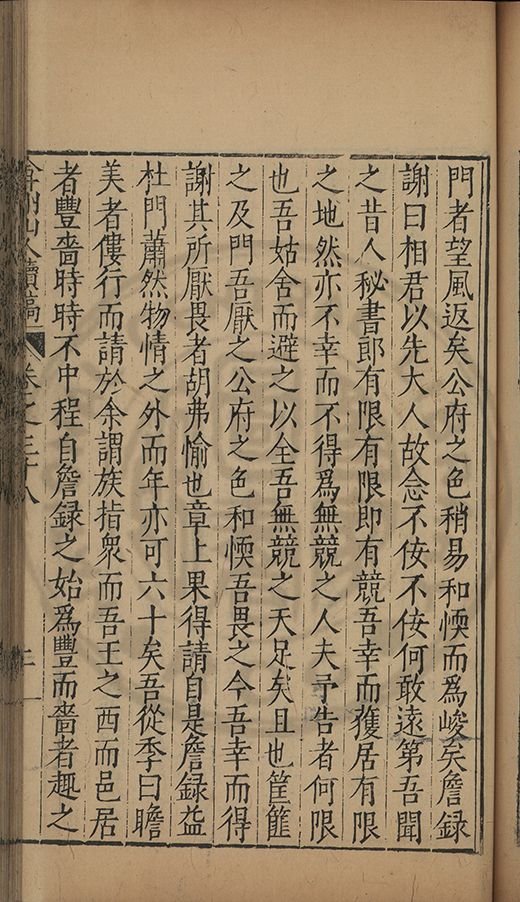 門者望風返矣公府之色稍易和愞而爲峻矣詹録
謝曰相君以先大人故念不佞不佞何敢遠第吾聞
之昔人秘書郎有限有限即有競吾幸而獲居有限
之地然亦不幸而不得爲無競之人夫予告者何限
也吾姑舍而避之以全吾無競之天足矣且也筐篚
之及門吾厭之公府之色和愞吾畏之今吾幸而得
謝其所厭畏者胡弗愉也章上果得請自是詹録益
杜門蕭然物情之外而年亦可六十矣吾從季曰瞻
美者僂行而請於余謂族指衆而吾王之西而邑居
者豐嗇時時不中程自詹録之始爲豐而嗇者趣之
弇州山人續稿 卷之三十八 二